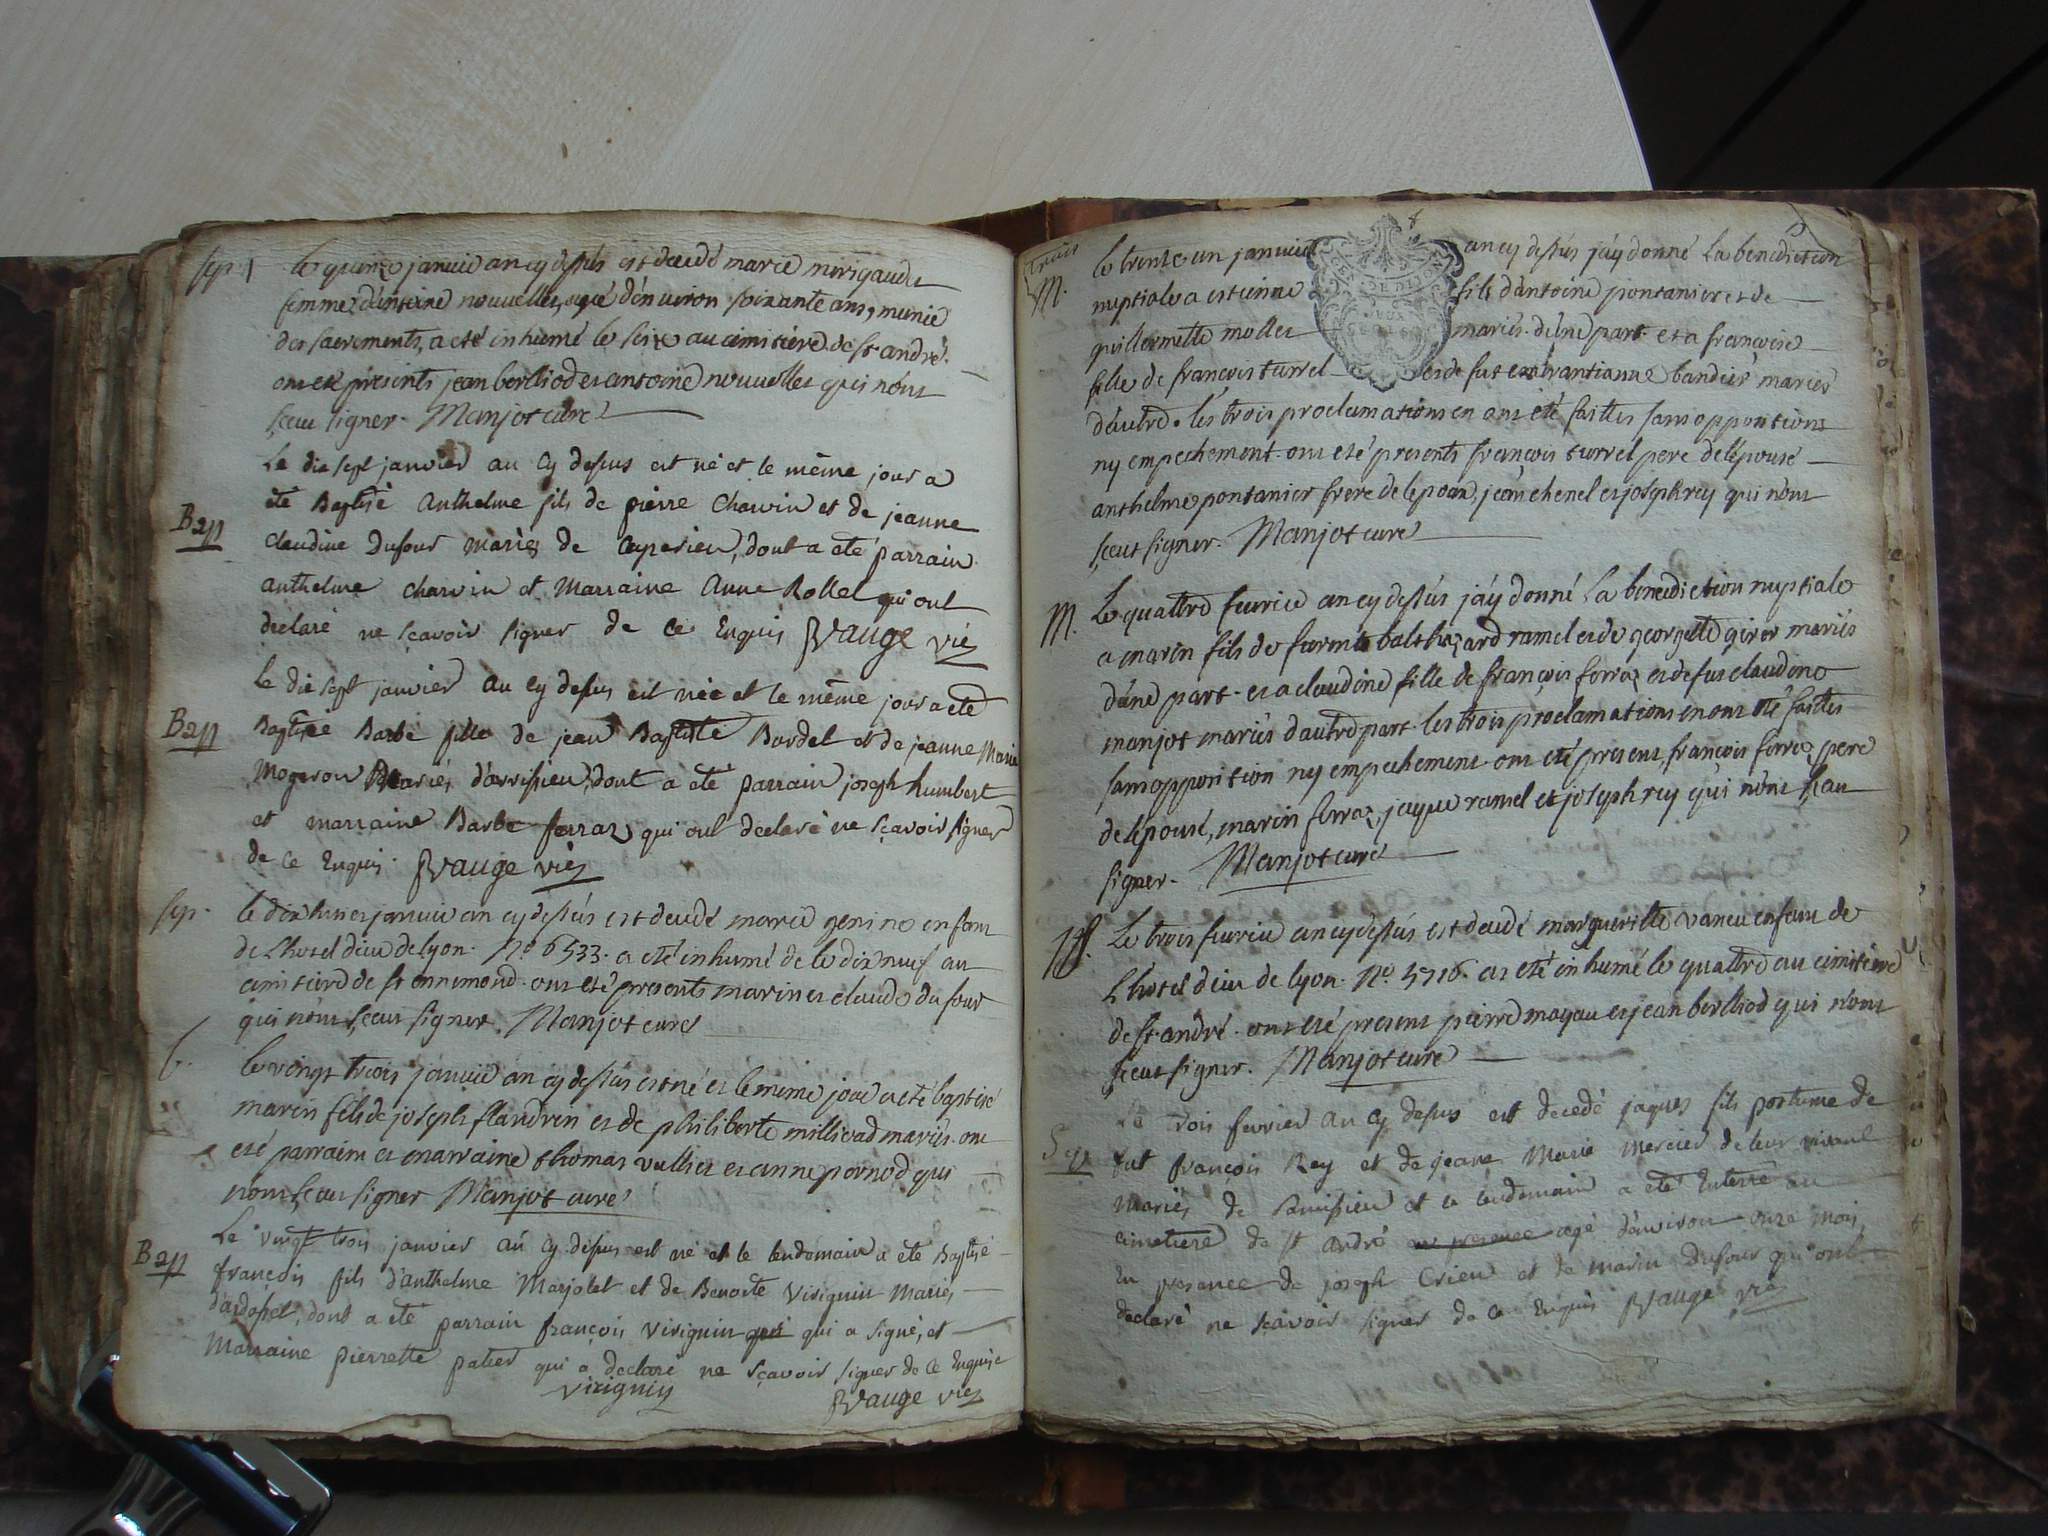 sep.
le quinze janvier an cy dessus est decedé marie
femme d'antoine nouvellet, agé d'environ soixante ans, munie
des sacrements, a eté inhumé le seize au cimitiere de st andré.
ont eté présents jean berlliod et antoine nouvellet qui n'ont
sceu signer. Manjot curé
Bap
Le die sept janvier an Cy desus est né et le même jour a
été Baptisé Anthelme fils de pierre Charvin et de jeanne
claudine Dufour mariés de Ceyserieu, dont a eté parrain
anthelme charvin et Marraine Anne Rollet qui ont
declaré ne sçavoir signer de ce Enquis Vauge vic
Bap
Le die sept janvier an Cy desus est née et le même jour a eté
Baptisée Barbe fille de jean Baptiste Bardel et de jeanne Marie
Mogeron Mariés d'arvisieu, dont a été parrain joseph humbert
et marraine Barbe ferraz qui ont declaré ne sçavoir signer
de ce Enquis. Vauge vic
sep.
le dix huit janvier an cy dessus est decedé marie genin enfant
de L'hotel dieu de lyon. No. 6533. a eté inhumé le dix neuf au
cimitiere de st ennemond. ont eté presents marin et claude dufour
qui n'ont sceut signer. Manjot curé
b.
le vingt trois janvier an cy dessus est né et le meme jour a eté baptisé
marin fils de joseph flandrin et de philiberte millieras mariés. ont
eté parrain et marraine thomas vullier et anne pornod qui
n'ont sceu signer Manjot curé
Bap
Le vingt trois janvier an Cy desus est né et le lendemain a eté Baptisé
françois fils d'anthelme Marjolet et de Benoite Virignin Mariés
d'ardosset, dont a eté parrain françois Virignin qui qui a signé, et
Marraine pierrette patier qui a declaré ne sçavoir signer de ce Enquise
Virignin Vauge vic
trois
M.
le trente un janvier an cy dessus j'ay donné la benediction
nuptiale a estienne fils d'antoine pontanier et de
guillermette mollet mariés d'une part et a francoise
fille de francois turrel et de fut bandier mariés
d'autre. les trois proclamations en ont eté faittes sans opposition
ny empechement. ont eté presents françois turrel pere de l'épouse
anthelme pontanier frere de lepoux, jean chenel et joseph rey qui n'ont
sceut signer. Manjot curé
M.
Le quattre fevrier an cy dessus j'ay donné la benediction nuptiale
a marin fils de balthazard ramel et de georgette girer mariés
d'une part. et a claudine fille de françois ferraz et de fut claudine
manjot mariés d'autre part. les trois proclamations en ont eté faittes
sans opposition ny empechement. ont eté present, françois ferraz pere
de lepouse, marin ferraz, jaque ramel et joseph rey qui n'ont sceau
signer. Manjot curé
Le trois fevrier an cy dessus est decedé marguerite vaneu enfant de
L'hotel dieu de lyon. No. 5716. et eté inhumé le quattre au cimitiere
de st andré. ont eté present pierre moyau et jean berlliod qui n'ont
sceut signer. Manjot curé
Sep
Le trois fevrier an Cy desus est decedé jaques fils postume de
fut françois Rey et de jeane Marie Mercier de leur vivant
Mariés de et le lendemain a eté Enterré au
cimetiere de st André en presence agé d'environ onze mois,
En presence de joseph Crieu et de marin Dufour qui ont
declaré ne sçavoir signer de ce Enquis Vauge vic